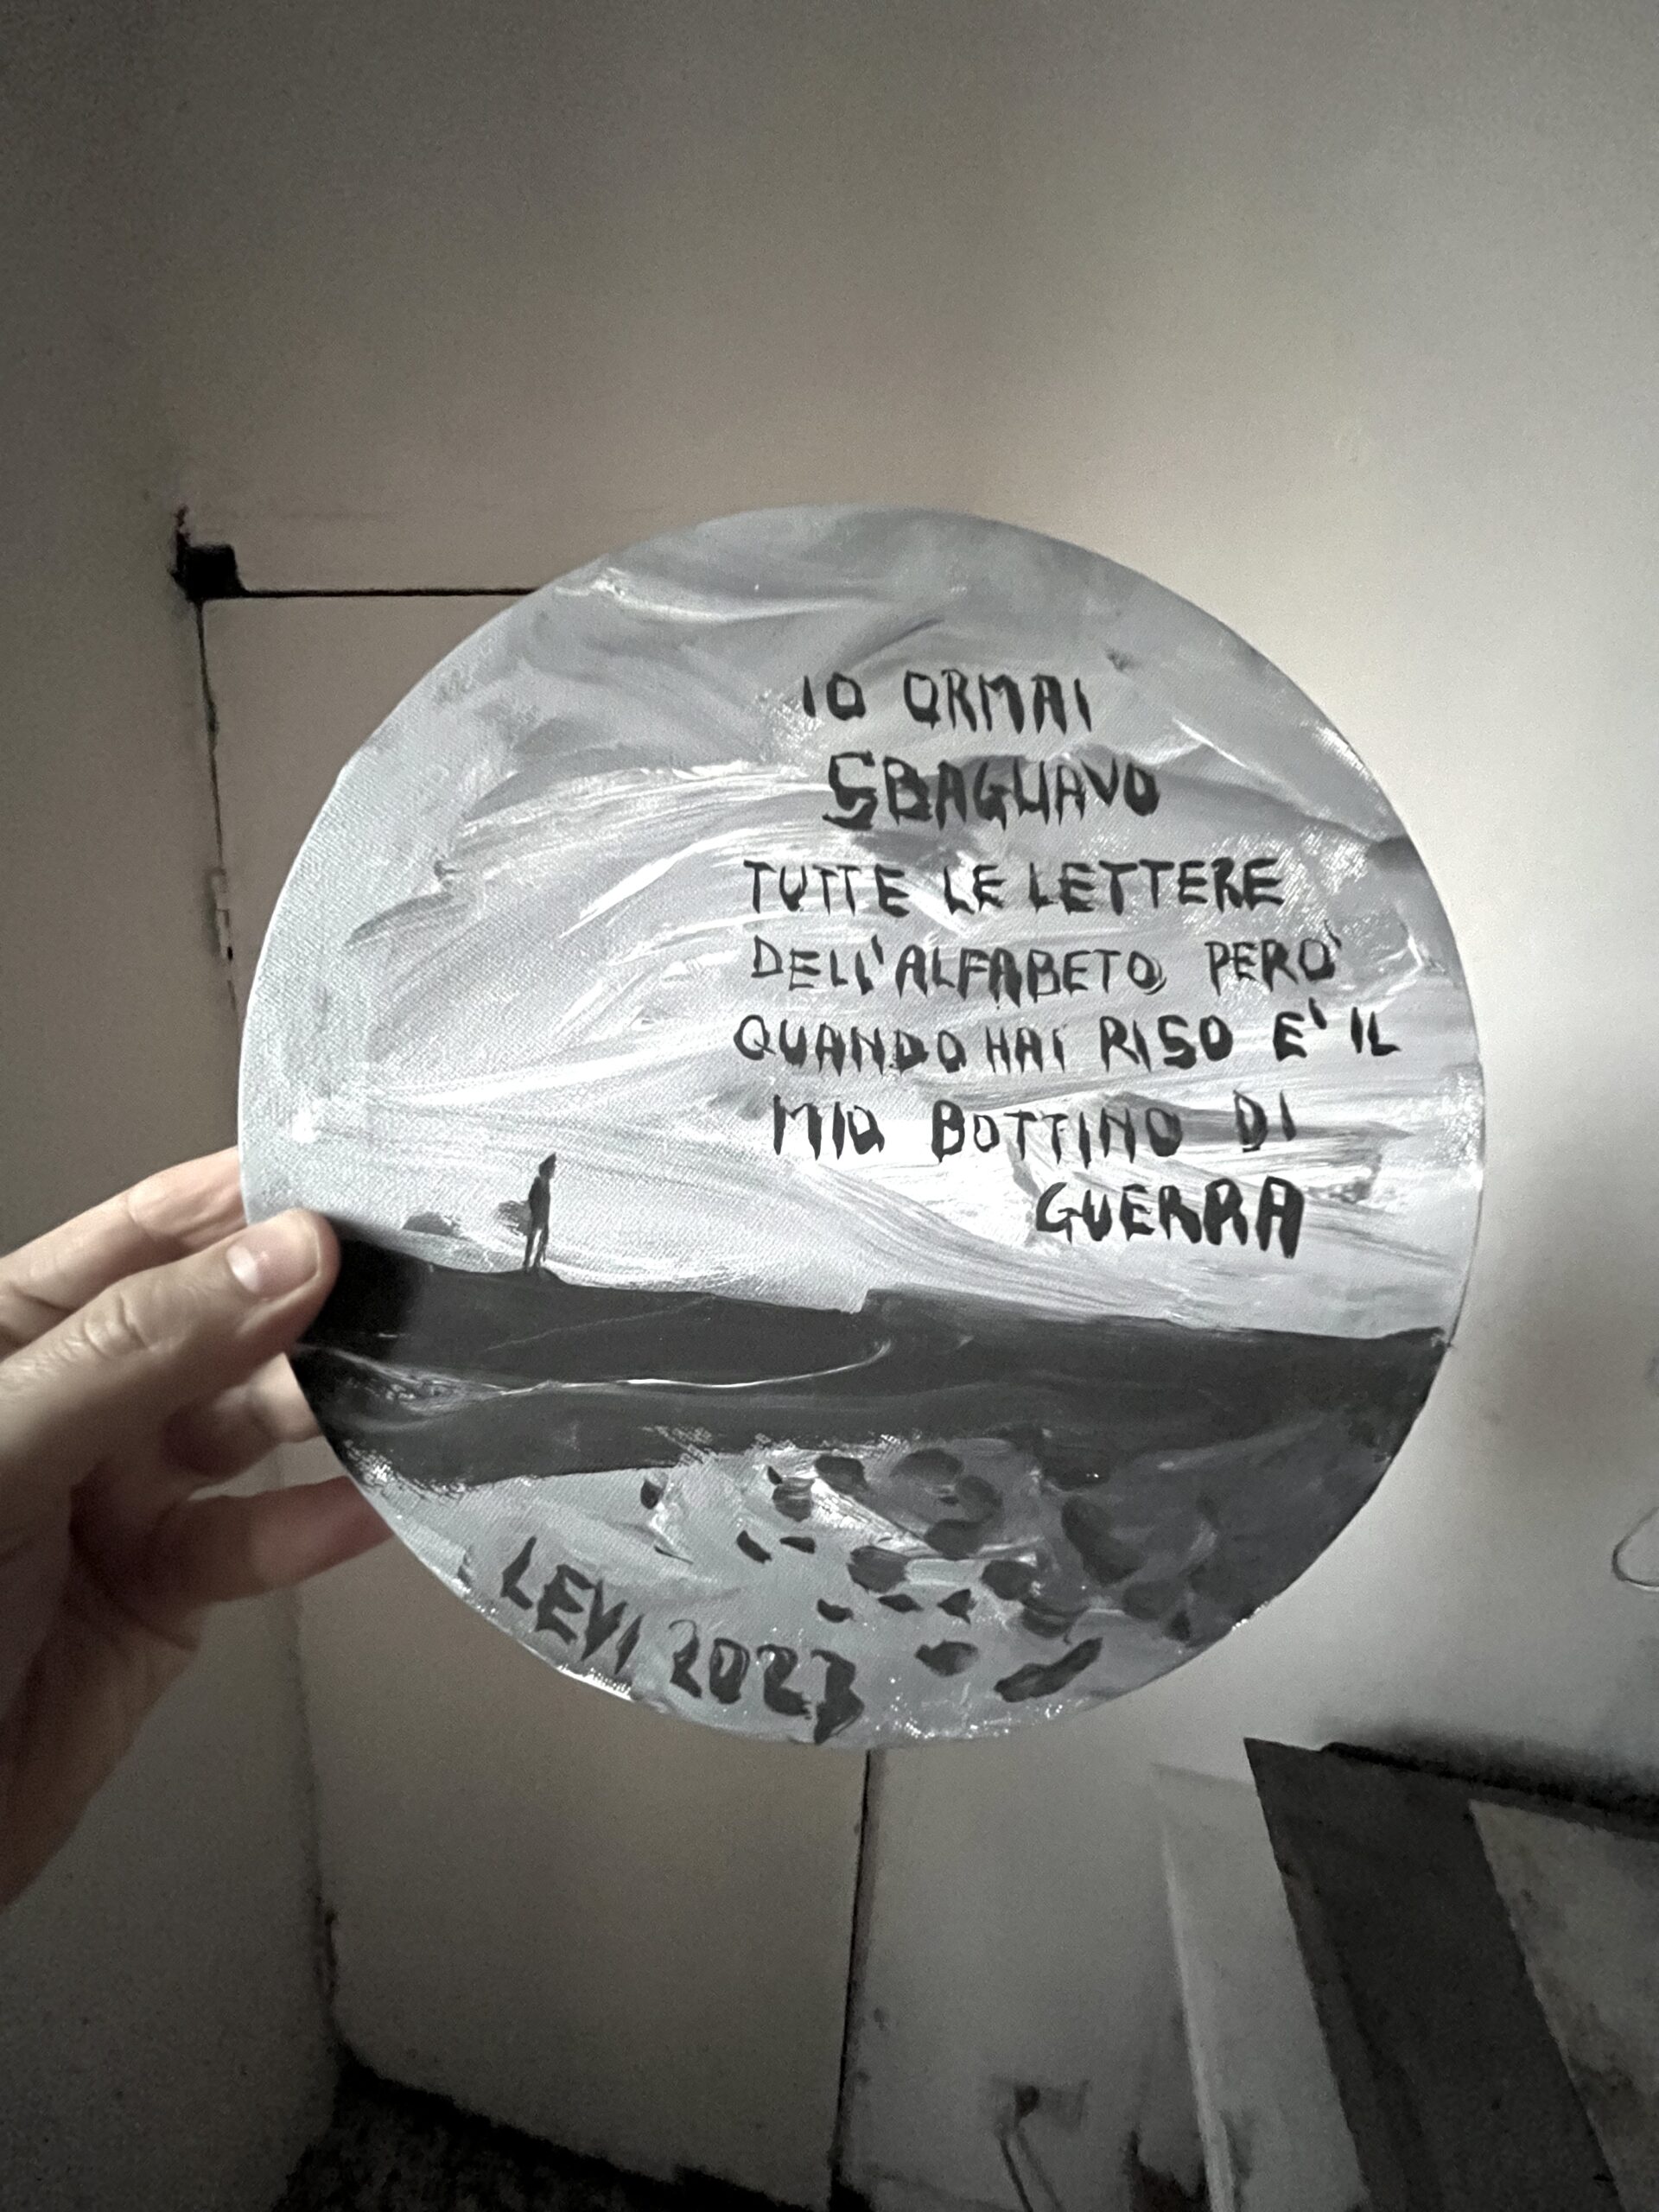 IO ORMAI
SBAGLIAVO
TUTTE LE LETTERE
DELL'ALFABETO, PERO'
QUANDO HAI RISO E' IL
MIO BOTTINO DI
GUERRA
LEVI 2023